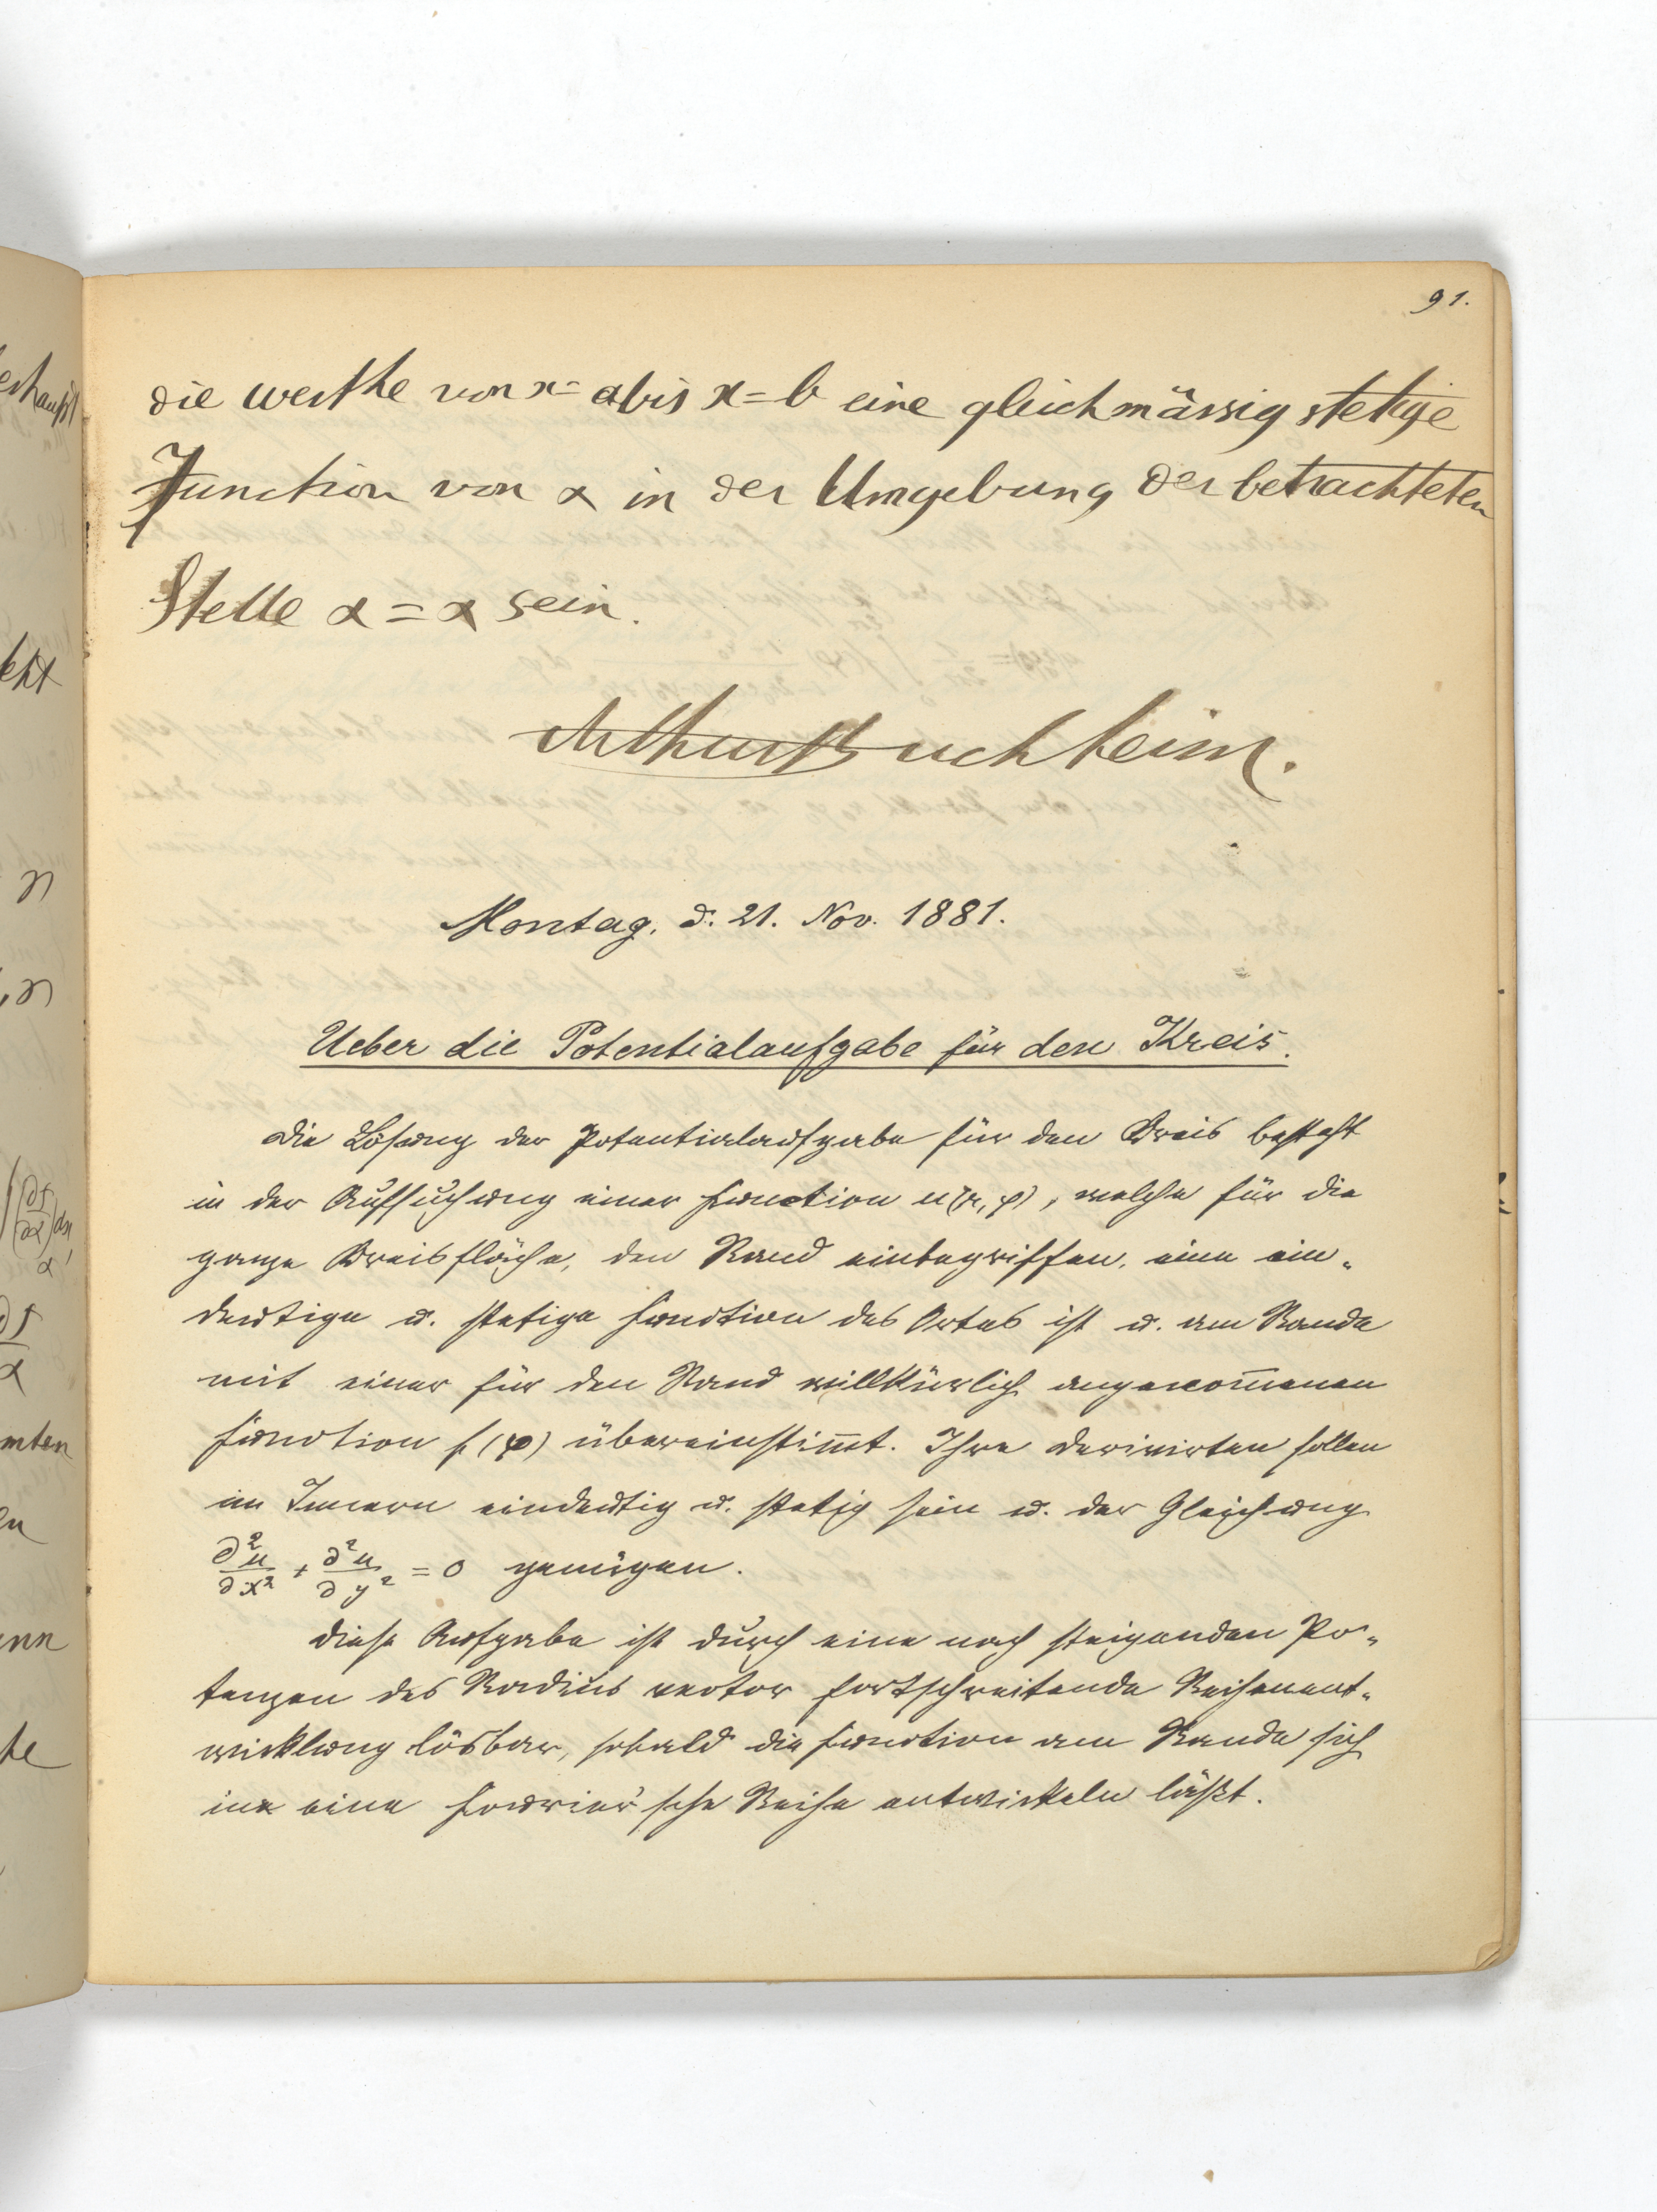 91.
die werthe von x = a bis x = b eine gleichmässig stetige
Function von α in der Umgebung der betrachteten
Stelle α = α sein.
Arthur Buchheim.
Montag. d. 21. Nov. 1881.
Ueber die Potentialaufgabe für den Kreis.
Die Lösung der Potentialaufgabe für den Kreis besteht
in der Aufsuchung einer Function u(r, φ), welche für die
ganze Kreisfläche, den Rand einbegriffen, eine ein-
deutige u. stetige Function des Ortes ist u. am Rande
mit einer für den Rand willkürlich angenom̅enen
Function f(φ) übereinstim̅t. Ihre Derivirten sollen
im Innern eindeutig u. stetig sein u. der Gleichung
∂²u/∂x² + ∂²u/∂y² = 0 genügen.
Diese Aufgabe ist durch eine nach steigenden Po-
tenzen des Radius vector fortschreitende Reihenent-
wicklung lösbar, sobald die Function am Rande sich
in eine Fourier'sche Reihe entwickeln läßt.